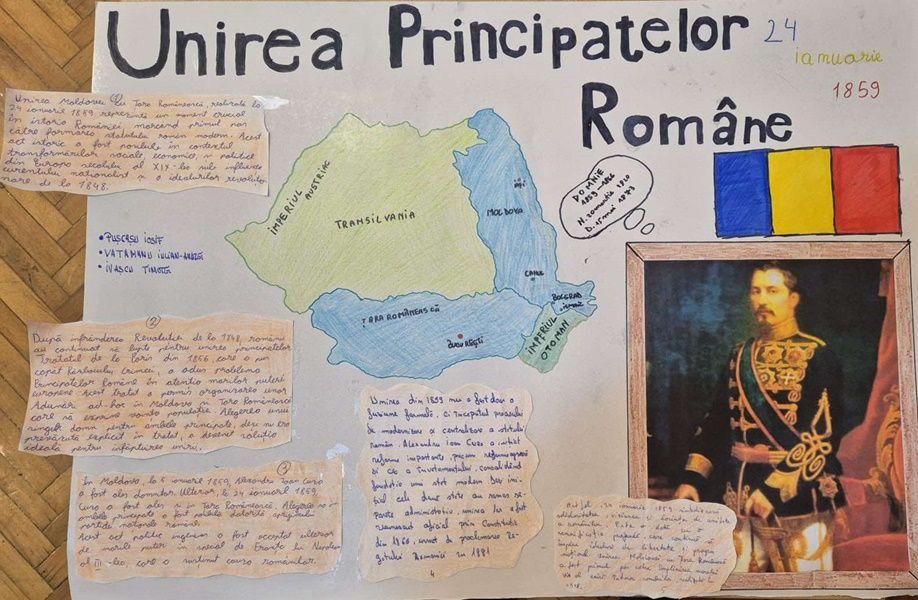 Unirea Principatelor
Române
24
ianuarie
1859
1
Unirea Moldovei cu Țara Românească, realizată la
24 ianuarie 1859 reprezintă un moment crucial
în istoria României, marcând primul pas
către formarea statului român modern. Acest
act istoric a fost posibil în contextul
transformărilor sociale, economice și politice
din Europa secolului al XIX-lea, sub influența
curentului naționalist și a idealurilor revoluțio-
nare de la 1848.
• PUȘCAȘU IOSIF
• VATAMANU IULIAN-ANDREI
• IVAȘCU TIMOTEI
IMPERIUL AUSTRIAC
TRANSILVANIA
MOLDOVA
IAȘI
CAHUL
BOLGRAD
ISMAIL
ȚARA ROMÂNEASCĂ
BUCUREȘTI
IMPERIUL
OTOMAN
DOMNIE
1859-1866
N. 20 martie 1820
D. 15 mai 1873
2
După înfrângerea Revoluției de la 1848, românii
au continuat să lupte pentru unirea principatelor.
Tratatul de la Paris din 1856, care a pus
capăt Războiului Crimeei, a adus problema
Principatelor Române în atenția marilor puteri
europene. Acest tratat a permis organizarea unor
Adunări ad-hoc în Moldova și Țara Românească
care să exprime voința populației. Alegerea unui
singur domn pentru ambele principate, deși nu era
prevăzută explicit în tratat, a devenit soluția
ideală pentru înfăptuirea unirii.
3
În Moldova, la 5 ianuarie 1859, Alexandru Ioan Cuza
a fost ales domnitor. Ulterior, la 24 ianuarie 1859,
Cuza a fost ales și în Țara Românească. Alegerea în
ambele principate a fost posibilă datorită sprijinului
partidei naționale române.
Acest act politic ingenios a fost acceptat ulterior
de marile puteri în special de Franța lui Napoleon
al III-lea, care a susținut cauza românilor.
Unirea din 1859 nu a fost doar o
fuziune formală, ci începutul procesului
de modernizare și centralizare a statului
român. Alexandru Ioan Cuza a inițiat
reforme importante, precum reforma agrară
și cea a învățământului, consolidând
fundațiile unui stat modern. Deși ini-
țial cele două state au rămas se-
parate administrativ, unirea lor a fost
recunoscută oficial prin Constituția
din 1866, urmat de proclamarea Re-
gatului României în 1881
4
Astfel, 24 ianuarie 1859 simbolizează
și dorința de unitate
a românilor. Este o dată cu
semnificație profundă, care continuă să
inspire idealuri de libertate și progres
național. Unirea Moldovei cu Țara Românească
a fost primul pas către împlinirea marelui
vis al
1918.
5